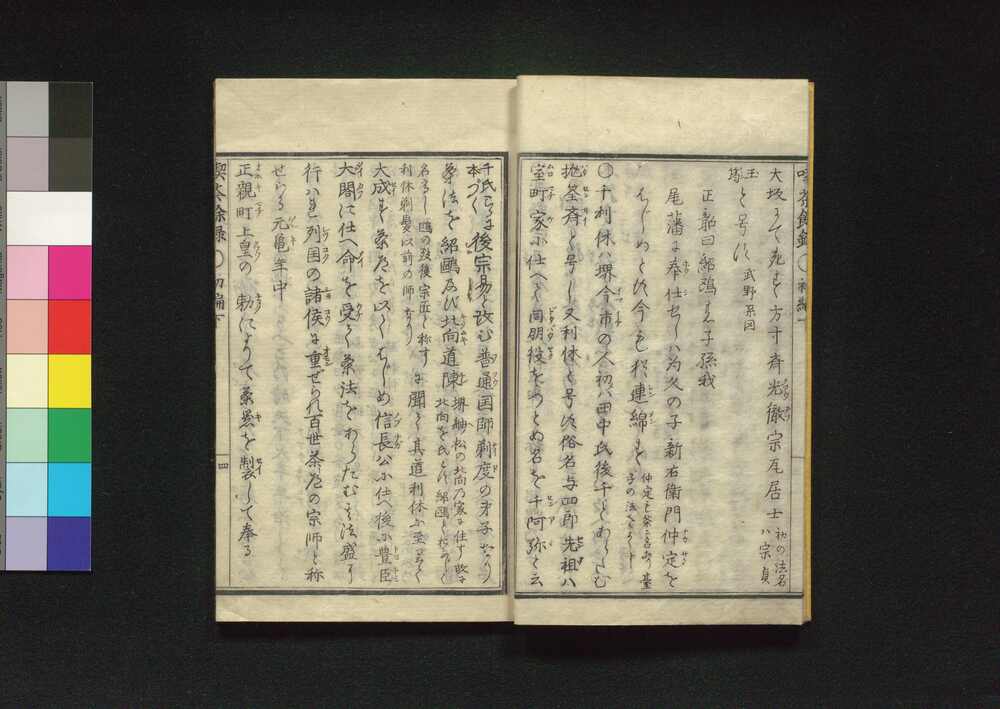 喫茶余録 〇 初編
大坂にて死す方寸斉光徹宗瓦居士 初の法名
ハ宗貞
玉
塢と号ス 武野系図
正韶曰紹鴎か子孫我
尾藩に奉仕せしハ為久の子新右衛門仲定を
はしめとす今も猶連綿す
〇千利休ハ堺今市の人初ハ田中氏後千とあらたむ
抛筌斉と号し又利休と号ス俗名与四郎先祖ハ
室町家に仕へて同朋役をつとめ名を千阿弥と云
千氏ことに
本づく後宗易と改む普通国師剃度の才子なり
茶法を紹鴎及び北向道陳 堺舳松の北向乃家に住す故に
北向を氏とす紹鴎と
利休剃髪以前の師なり に聞て其道利休に至りて
大成す茶道を以てはしめ信長公に仕へ後に豊臣
大閤に仕へ命を受て茶法をあらたむ其法盛に
行ハれ列国の諸侯に重せられ百世茶道の宗師と称
せらる元亀年中
正親町上皇の 勅によりて茶器を製して奉る
喫茶余録 〇 初編下 四